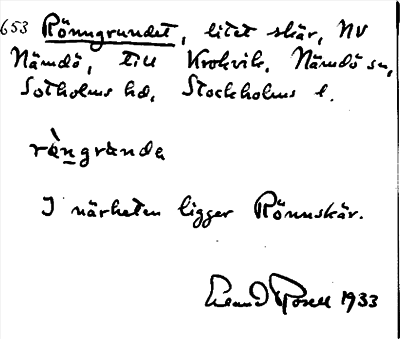 653 Rönngrundet, litet skär, NV
Nämdö, till Krokvik, Nämdö sn,
Sotholms hd, Stockholms l.
rängrunda
I närheten ligger Rönnskär.
1933